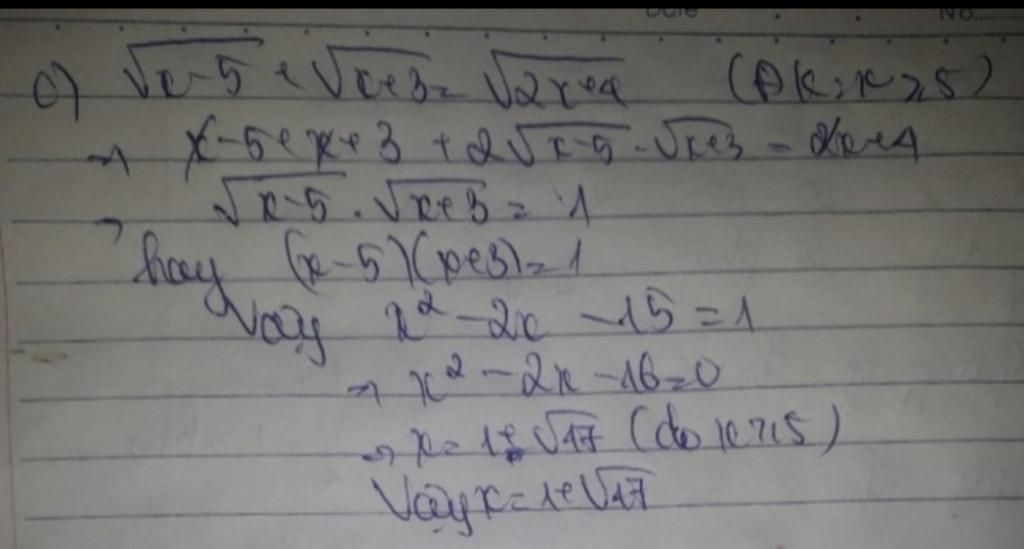 Date No.
c) √(x-5) + √(x+3) = √(2x+4) (ĐK: x ≥ 5)
→ x-5+x+3 + 2√(x-5) . √(x+3) = 2x+4
→ √(x-5) . √(x+3) = 1
hay (x-5)(x+3) = 1
Vậy x² - 2x - 15 = 1
→ x² - 2x - 16 = 0
→ x = 1+√17 (do x ≥ 5)
Vậy x = 1+√17